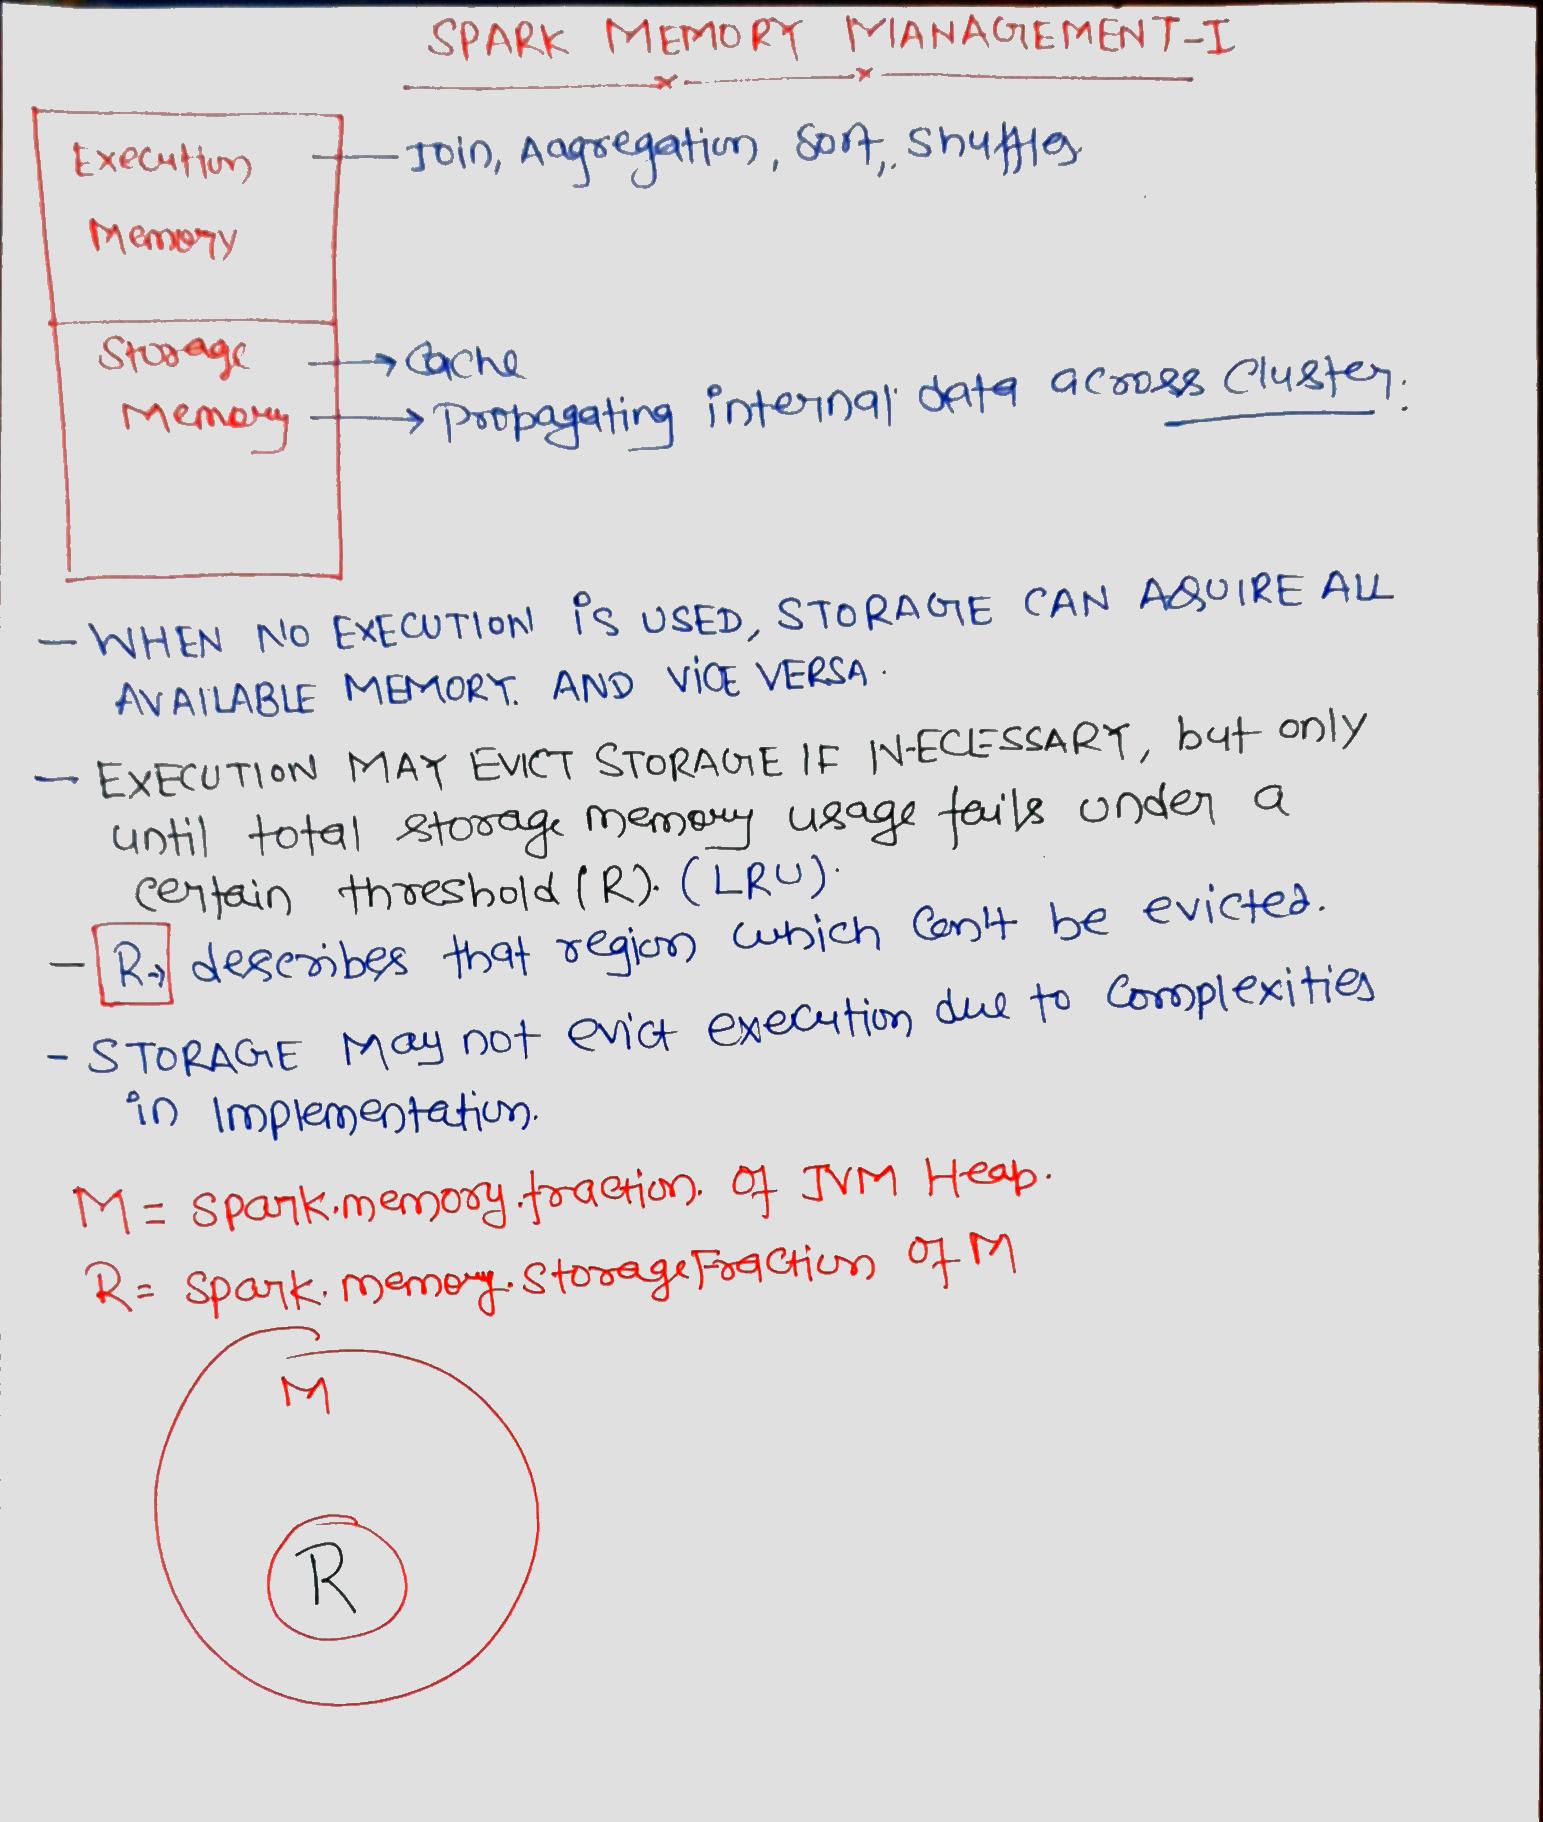 SPARK MEMORY MANAGEMENT-I
Execution — Join, Aagregation, Sort, Shuffles
Memory
Storage → Cache
Memory → Propagating internal data across Cluster.
- WHEN NO EXECUTION is USED, STORAGE CAN AQUIRE ALL
AVAILABLE MEMORY. AND VICE VERSA.
- EXECUTION MAY EVICT STORAGE IF NECESSARY, but only
until total storage memory usage falls under a
certain threshold (R). (LRU).
- R→ describes that region which Can't be evicted.
- STORAGE May not evict execution due to Complexities
in Implementation.
M = spark.memory.fraction. of JVM Heap.
R = spark.memory.StorageFraction of M
M
R